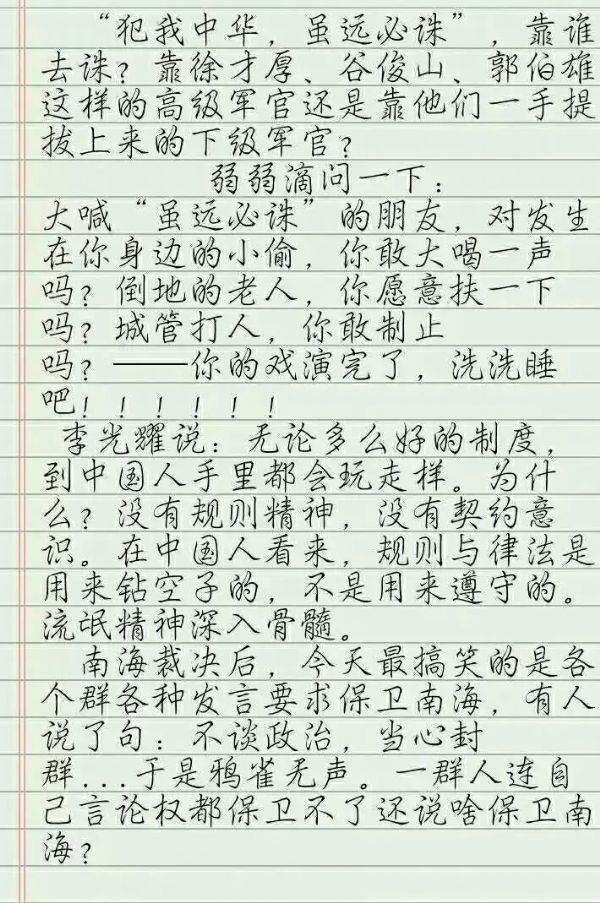 “犯我中华，虽远必诛”，靠谁
去诛？靠徐才厚、谷俊山、郭伯雄
这样的高级军官还是靠他们一手提
拔上来的下级军官？
弱弱滴问一下：
大喊“虽远必诛”的朋友，对发生
在你身边的小偷，你敢大喝一声
吗？倒地的老人，你愿意扶一下
吗？城管打人，你敢制止
吗？——你的戏演完了，洗洗睡
吧！！！！！！
李光耀说：无论多么好的制度，
到中国人手里都会玩走样。为什
么？没有规则精神，没有契约意
识。在中国人看来，规则与律法是
用来钻空子的，不是用来遵守的。
流氓精神深入骨髓。
南海裁决后，今天最搞笑的是各
个群各种发言要求保卫南海，有人
说了句：不谈政治，当心封
群...于是鸦雀无声。一群人连自
己言论权都保卫不了还说啥保卫南
海？